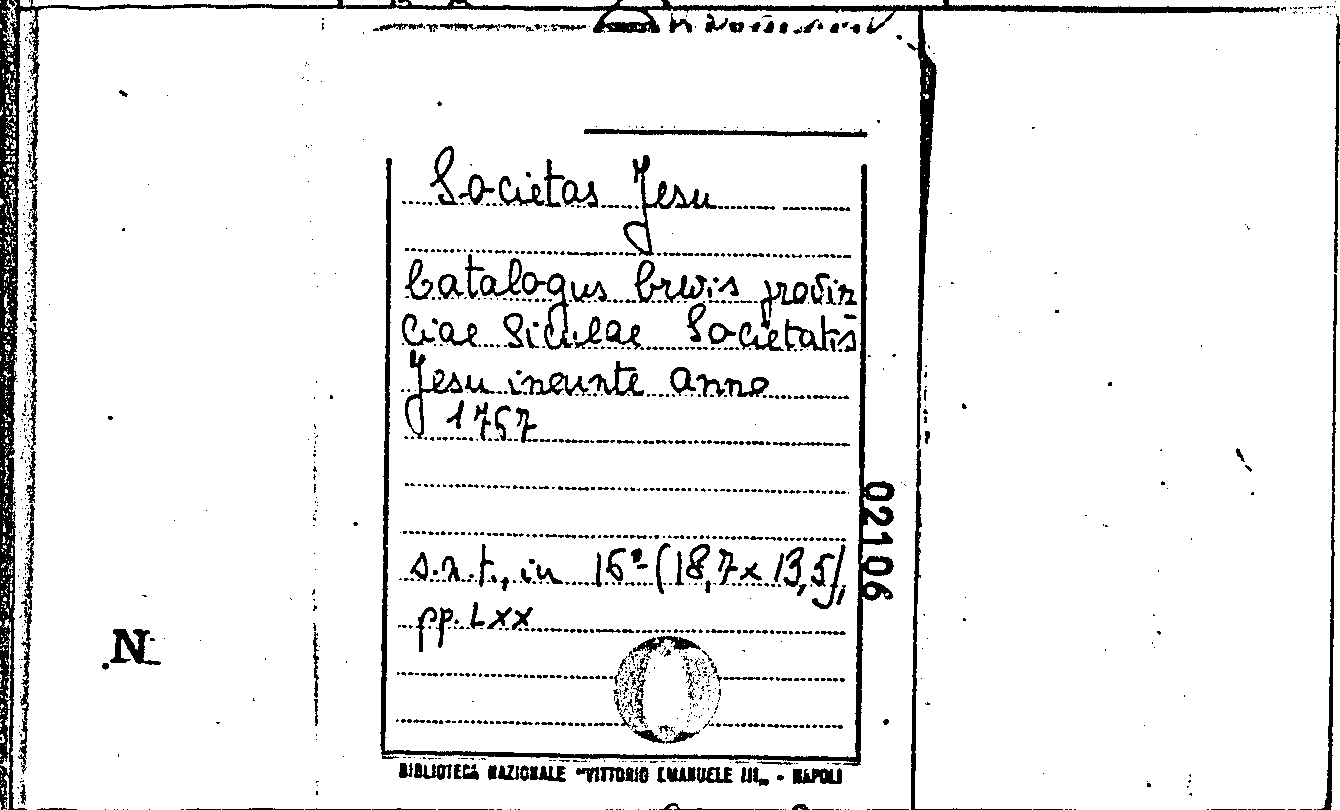 Societas Jesu
Catalogus brevis provin
ciae Siculae Societatis
Jesu ineunte anno
1767
s.n.t., in 16º (18,7 x 13,5),
pp. LXX
02106
N
BIBLIOTECA NAZIONALE "VITTORIO EMANUELE III" - NAPOLI